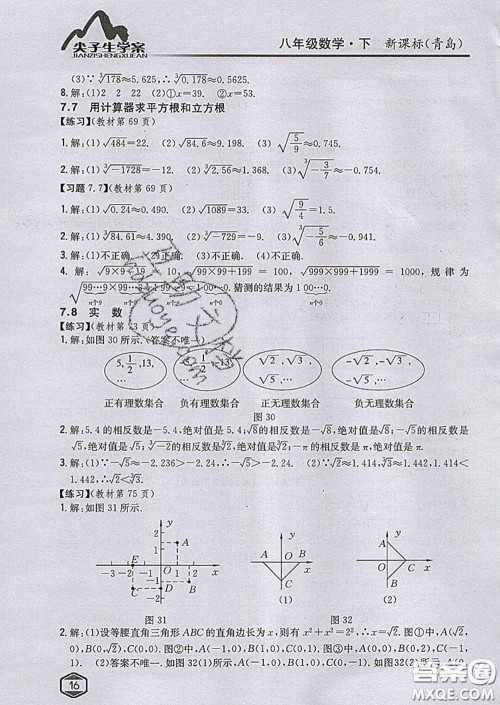 尖子生学案
JIANZISHENGXUEAN
八年级数学·下 新课标(青岛)
(3)∵∛178≈5.625,∴∛0.178≈0.5625.
8.解:(1)2 2 22 (2)①x=39. ②x=51.
7.7 用计算器求平方根和立方根
【练习】(教材第69页)
1.解:(1)√484=22. (2)√84.6≈9.198. (3)√(5/9)≈0.745.
2.解:(1)∛-1728=-12. (2)∛2.56≈1.368. (3)∛(-3/7)≈-0.754.
【习题7.7】(教材第69页)
1.解:(1)√0.24≈0.490. (2)√1089=33. (3)√(9/4)=1.5.
2.解:(1)∛84.61≈4.390. (2)∛-729=-9. (3)∛(-5/6)≈-0.941.
3.解:(1)不正确. (2)正确. (3)不正确. (4)不正确.
4. 解: √9×9+19=10, √99×99+199=100, √999×999+1999=1000, 规律为
√99…9×99…9+199…9=100…0.猜测的结果为100…0.
n个9 n个9 n个9 n个0 n个0
7.8 实 数
【练习】(教材第73页)
1.解:如图30所示.(答案不唯一)
5,1/2,13, …
√2,√3, √5,…
-√2,-√3, -√5,…
正有理数集合 负有理数集合 正无理数集合 负无理数集合
图30
2.解:5.4的相反数是-5.4,绝对值是5.4;√8的相反数是-√8,绝对值是√8;-√5的相反数是
√5,绝对值是√5;∛-2的相反数是∛2,绝对值是∛2;-π的相反数是π,绝对值是π.
3.解:(1)∵-√5≈-2.236>-2.24,∴-√5>-2.24. (2)∵√2≈1.414,∛3≈1.442,1.414<
1.442,∴√2<∛3.
【练习】(教材第75页)
1.解:如图31所示.
y
2
1
A
-3 -2 -1 O 1 2 x
D
-1
C
-2
B
图31
y
A O B x
C
(1)
y
A
O C x
B
(2)
图32
2.解:(1)设等腰直角三角形ABC的直角边长为x,则有x²+x²=2²,所以x=√2.图①中,A(√2,
0),B(0,√2),C(0,0).图②中,A(-1,0),B(1,0),C(0,1).图③中,A(0,1),B(0,-1),C(1,
0). (2)答案不唯一.如图32(1)所示,A(-1,0),B(1,0),C(0,-1).如图32(2)所示,A(0,
16
答案圈
MXQE.COM